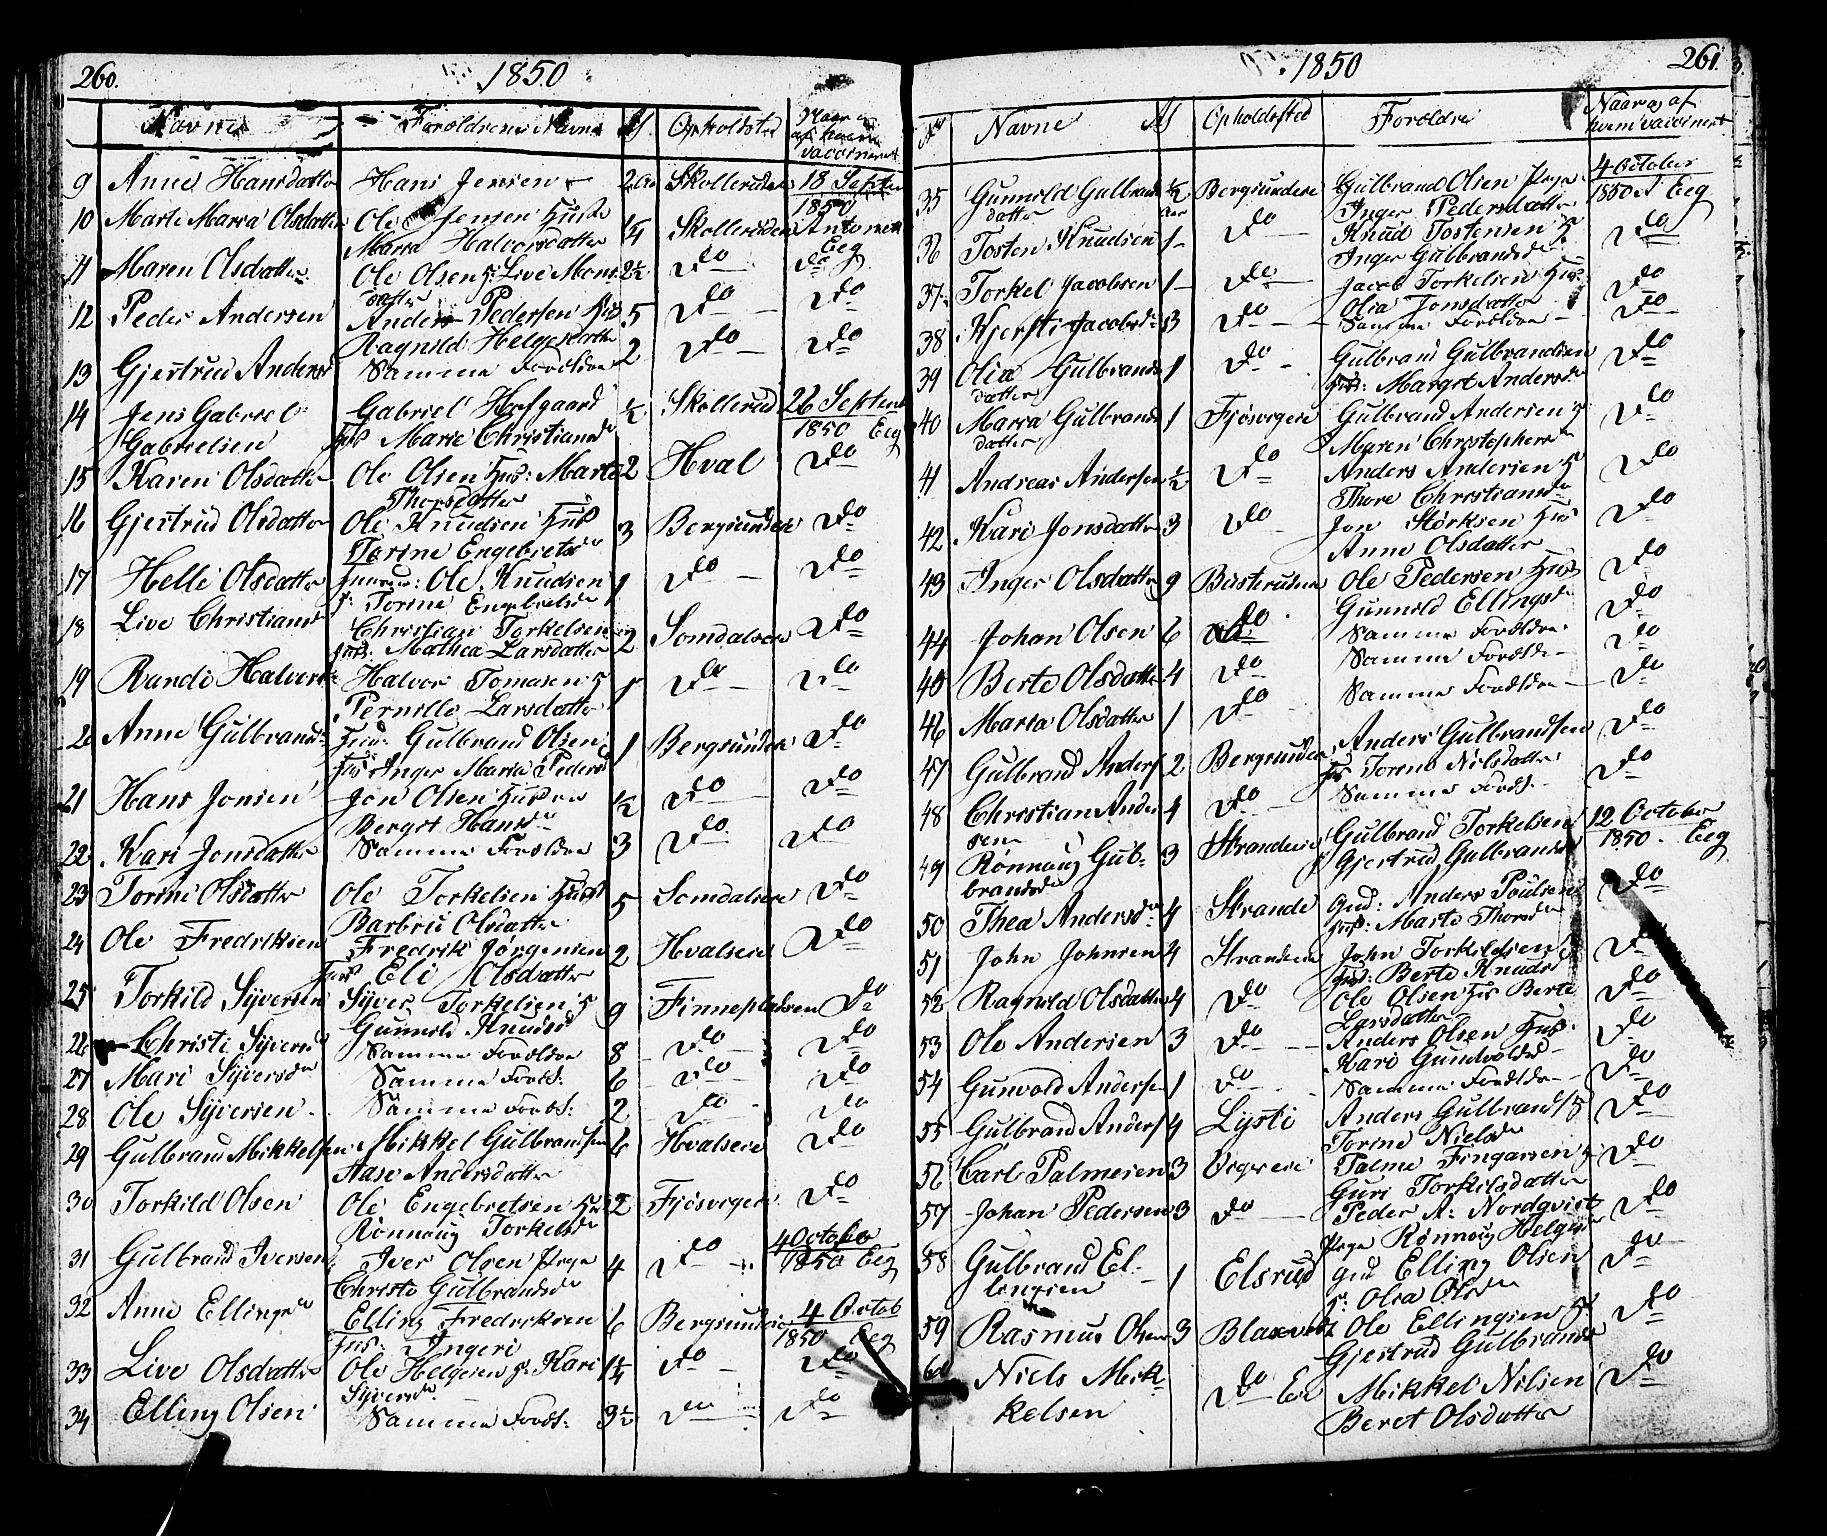 260. 1850
Navne Forældrenes Navne Opholdsted
9 Anne Hansdatter Hans Jensen 2 Skollerud 18 Septbr
1850
10 Marte Maria Olsdatter Ole Jensen Hust 1/4 Skollerud Anton
Maria Halvorsdatter Eeg
11 Maren Olsdatter Ole Olsen H: Live Mons 2 1/2 Do Do
datter
12 Peder Andersen Anders Pedersen Hus 5 Do Do
Ragnild Helgesdatter
13 Gjertrud Andersd Samme Forældre 2 Do Do
14 Jens Gabriel Gabriel Hofgaard 1/2 Skollerud 26 Septemb
Gabrielsen Hus Marie Christiansd 1850 Eeg
15 Karen Olsdatter Ole Olsen Hus: Marte 2 Hval Do
Thorsdatter
16 Gjertrud Olsdatter Ole Knudsen Hus 3 Bergsundere Do
Torine Engebretsd
17 Helle Olsdatter Ole Knudsen 1 Do Do
Torine Engebretsd
18 Live Christiansd Christian Torkelsen 2 Somdalsere Do
Hus: Mathea Larsdatter
19 Randi Halvorsd Halvor Tomasen H 1 Do Do
Pernille Larsdatter
20 Anne Gulbrandsd Gulbrand Olsen 1 Bergsundere Do
Hus Inger Maria Pedersd
21 Hans Jonsen Jon Olsen Hustru 1/2 Do Do
Bergit Hansd
22 Kari Jonsdatter Samme Forældre 3 Do Do
23 Torine Olsdatter Ole Torkelsen Hust 5 Somdalsere Do
Barbru Olsdatter
24 Ole Fredriksen Fredrik Jørgensen 2 Hvalsere Do
Hus Eli Olsdatter
25 Torkild Syversen Syver Torkelsen H 9 Do
Gunnild Knudsd
26 Christi Syversd Samme Forældre 8 Do Do
27 Mari Syversd Samme Foræl: 6 Do Do
28 Ole Syversen Samme Foræl: 2 Do Do
29 Gulbrand Mikkelsen Mikkel Gulbrandsen 6 Hvalsere Do
Aase Andersdatter
30 Torkild Olsen Ole Engebretsen 2 Fjøsvigere Do
Rønnoug Torkelsd
31 Gulbrand Iversen Iver Olsen Pige 4 Do 4 October
Christe Gulbrandsd 1850 Eeg
32 Anne Ellingsd Elling Fredriksen 6 Bergsundere 4 Octob
Hus: Ingeri 1850 Eeg
33 Live Olsdatter Ole Helgesen H: Kari 1 1/4 Do Do
Syversd
34 Elling Olsen Samme Foræl: 3 1/2 Do Do
1850 261.
Navne Opholdsted Forældre Naar og af
hvem vaccineret
35 Gunnild Gulbrands 1/2 Bergsundere Gulbrand Olsen Pige 4 October
datter Inger Pedersdatter 1850 Eeg
36 Tosten Knudsen 1 Do Knud Tostensen H Do
Inger Gulbrandsd
37 Torkel Jacobsen 1 Do Jacob Torkelsen Hus: Do
Olia Jonsdatter
38 Kjersti Jacobsd: 3 Do Samme Forældre Do
39 Olia Gulbrands 1 Do Gulbrand Gulbrandsen Do
datter Hus: Margit Andersd
40 Maria Gulbrands 1 Fjøsvigere Gulbrand Andersen H Do
datter Maren Christophersd
41 Andreas Andersen 1/2 Do Anders Andersen H Do
Thore Christiansd
42 Kari Jonsdatter 3 Do Jon Størksen Hus Do
Anne Olsdatter
43 Inger Olsdatter 9 Busterudere Ole Pedersen Hus Do
Gunnild Ellingsd
44 Johan Olsen 6 Do Samme Forældre Do
45 Berte Olsdatter 4 Do Samme Forældre Do
46 Maria Olsdatter 1 Do Samme Forældre Do
47 Gulbrand Anders 2 Bergsundere Anders Gulbrandsen Do
Hus Torine Nilsdatter
48 Christian Ander 4 Do Samme Foræl: Do
sen
49 Rønnoug Gul- 3 Strandere Gulbrand Torkelsen 12 October
brandsd Gjertrud Gulbrandsd 1850. Eeg
50 Thea Andersd 4 Strande Gud: Anders Poulsen Do
Hus: Marte Thorsd
51 John Johnsen 4 Strandere John Torkildsen Do
Hus: Berte Knudsd
52 Ragnild Olsdatter 4 Do Ole Olsen Hus Berte Do
Larsdatter
53 Ole Andersen 3 Do Anders Olsen Hus: Do
Kari Gundvoldsd
54 Gunvold Andersen 1 Do Samme Forældre Do
55 Gulbrand Anders 4 Lysti Anders Gulbrands H Do
Torine Nielsd
56 Carl Palmesen 3 Palme Fingarsen H Do
Guri Torkilsdatter
57 Johan Pedersen 3 Do Peder A: Nordqvist Do
Pige Rønnoug Helges
58 Gulbrand El- 1 Elsrud Gud Elling Olsen Do
lingsen H: Olia Olsd
59 Rasmus Olsen 3 Ole Ellingsen H: Do
Gjertrud Gulbrandsd
60 Niels Mik- Do Mikkel Nilsen Do
kelsen Beret Olsdatter